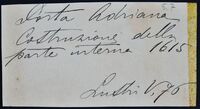 57
Porta Adriana
Costruzione della
parte interna 1615
Lustri V. 70